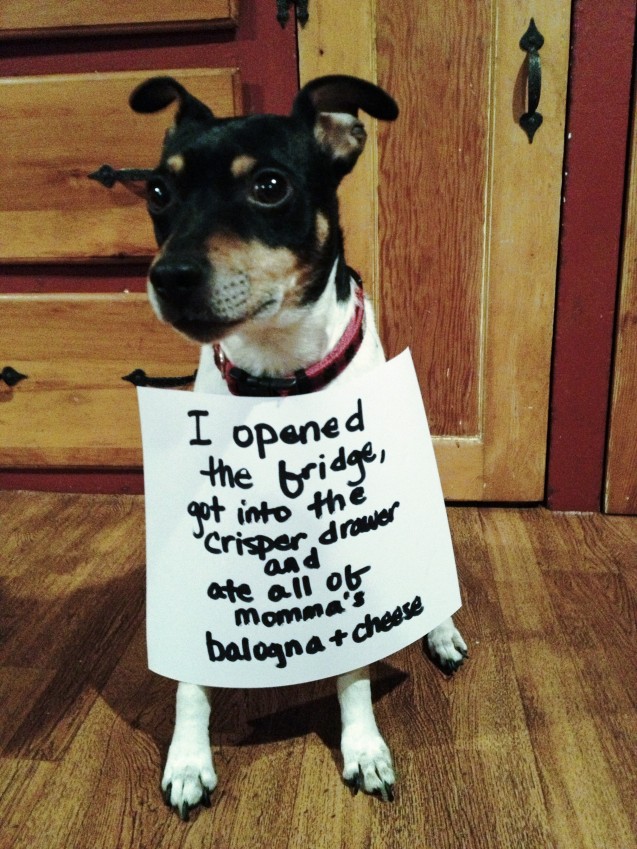 I opened
the fridge,
got into the
crisper drawer
and
ate all of
momma's
balogna + cheese